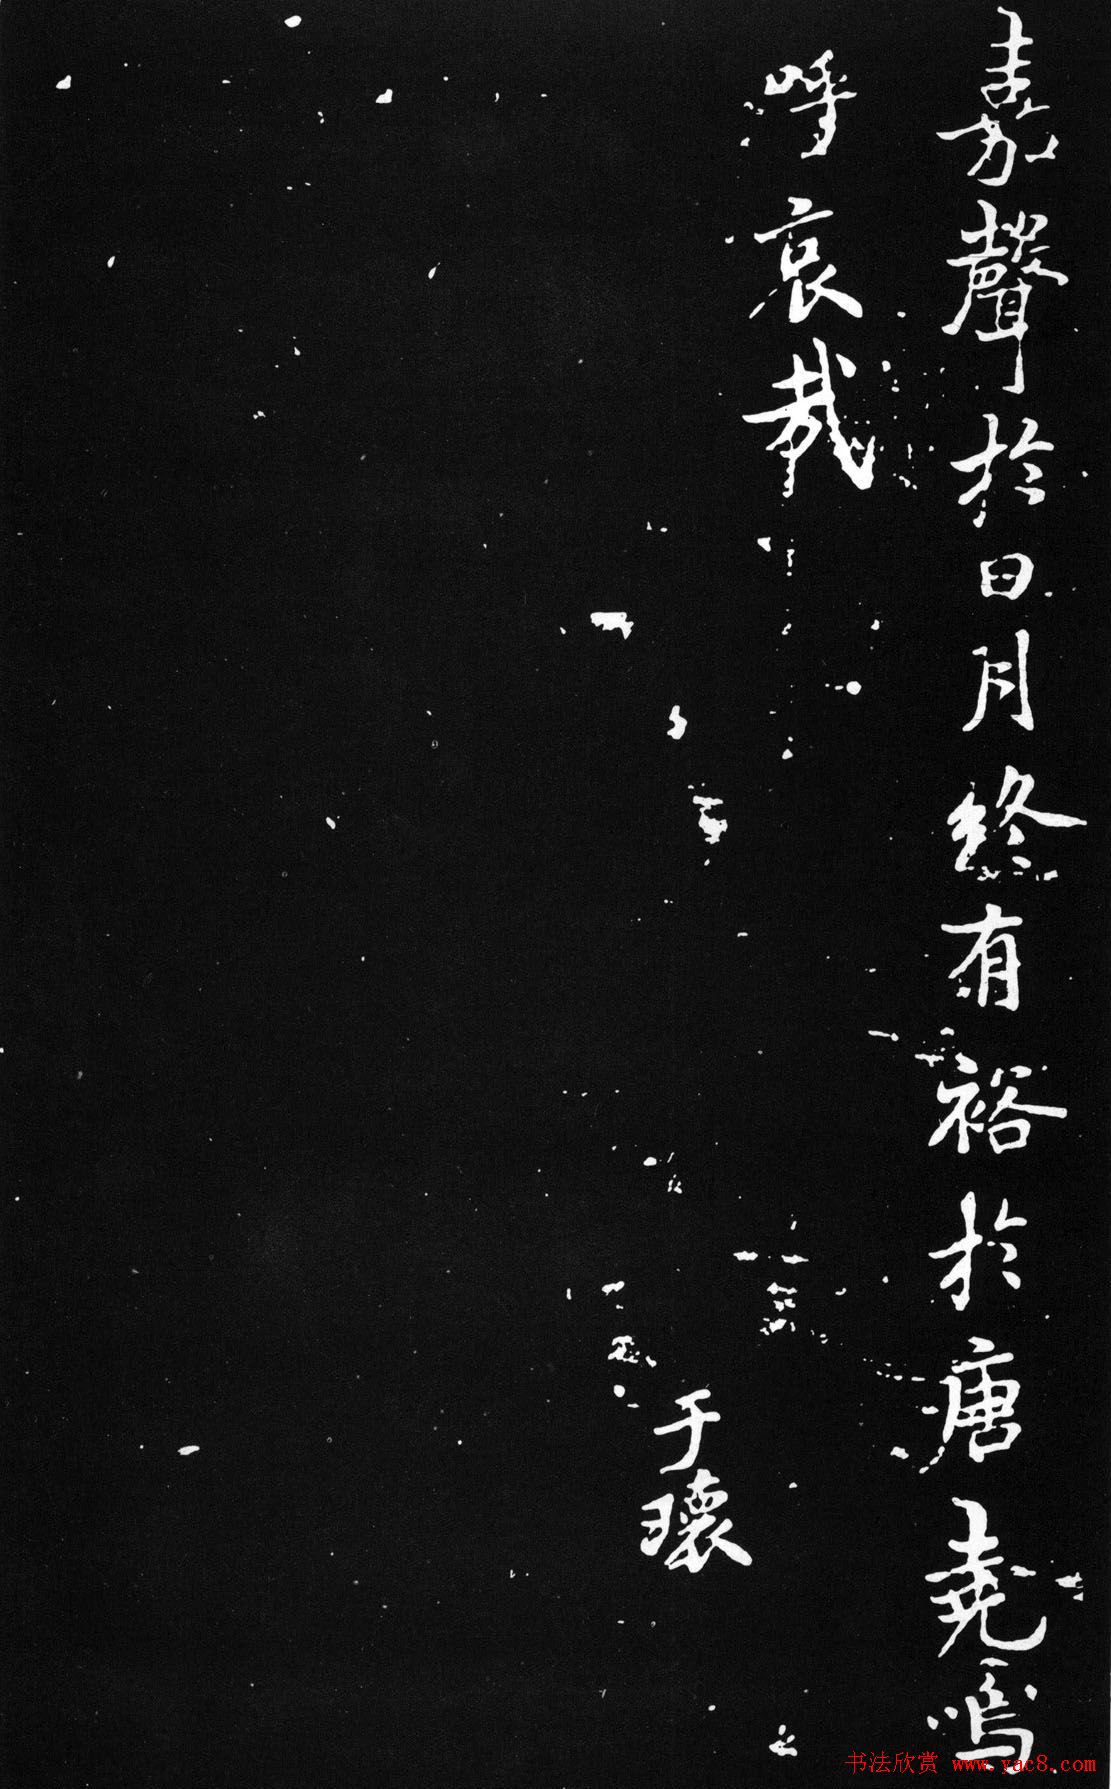 嘉聲於日月終有裕於唐堯嗚
呼哀哉
于瓌
书法欣赏 www.yac8.com